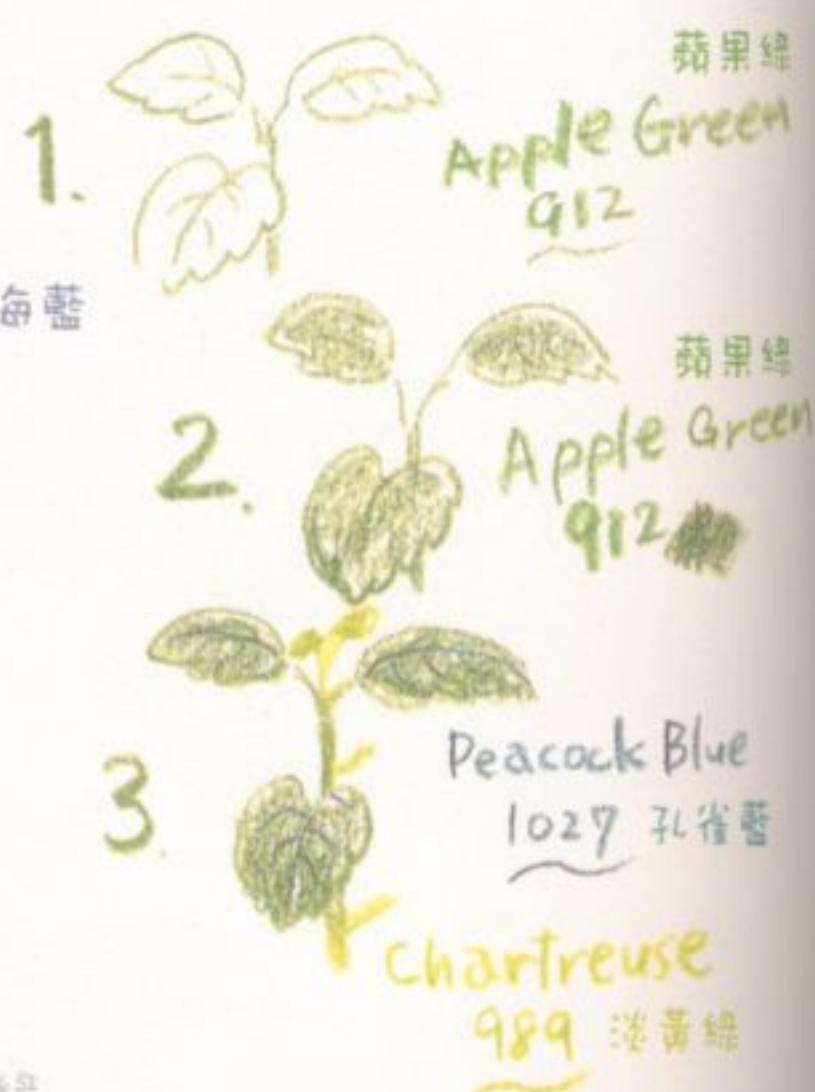 蘋果綠
1.
Apple Green
912
海藍
蘋果綠
2.
Apple Green
912
3.
Peacock Blue
1027 孔雀藍
Chartreuse
989 淡黃綠